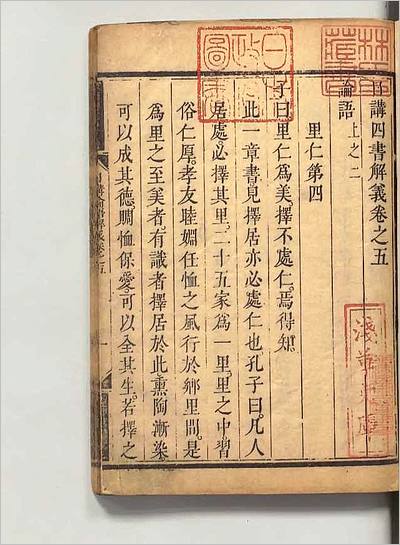 日講四書解義卷之五
論語上之二
里仁第四
子曰里仁爲美擇不處仁焉得知
此一章書見擇居亦必處仁也孔子曰凡人
居處必擇其里二十五家爲一里里之中習
俗仁厚孝友睦婣任恤之風行於鄉里間是
爲里之至美者有識者擇居於此熏陶漸染
可以成其德賙恤保愛可以全其生若擇之
林氏藏書
日本政府圖書
淺草文庫